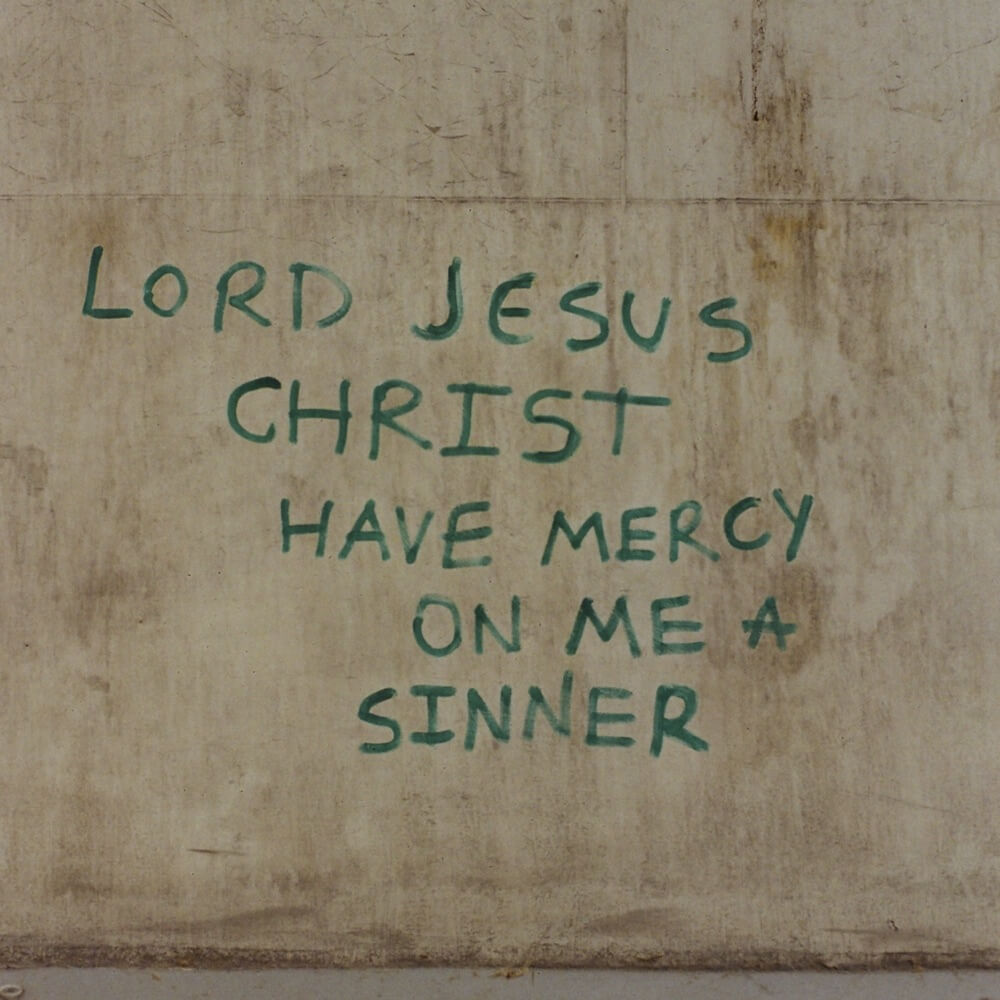 LORD JESUS
CHRIST
HAVE MERCY
ON ME A
SINNER